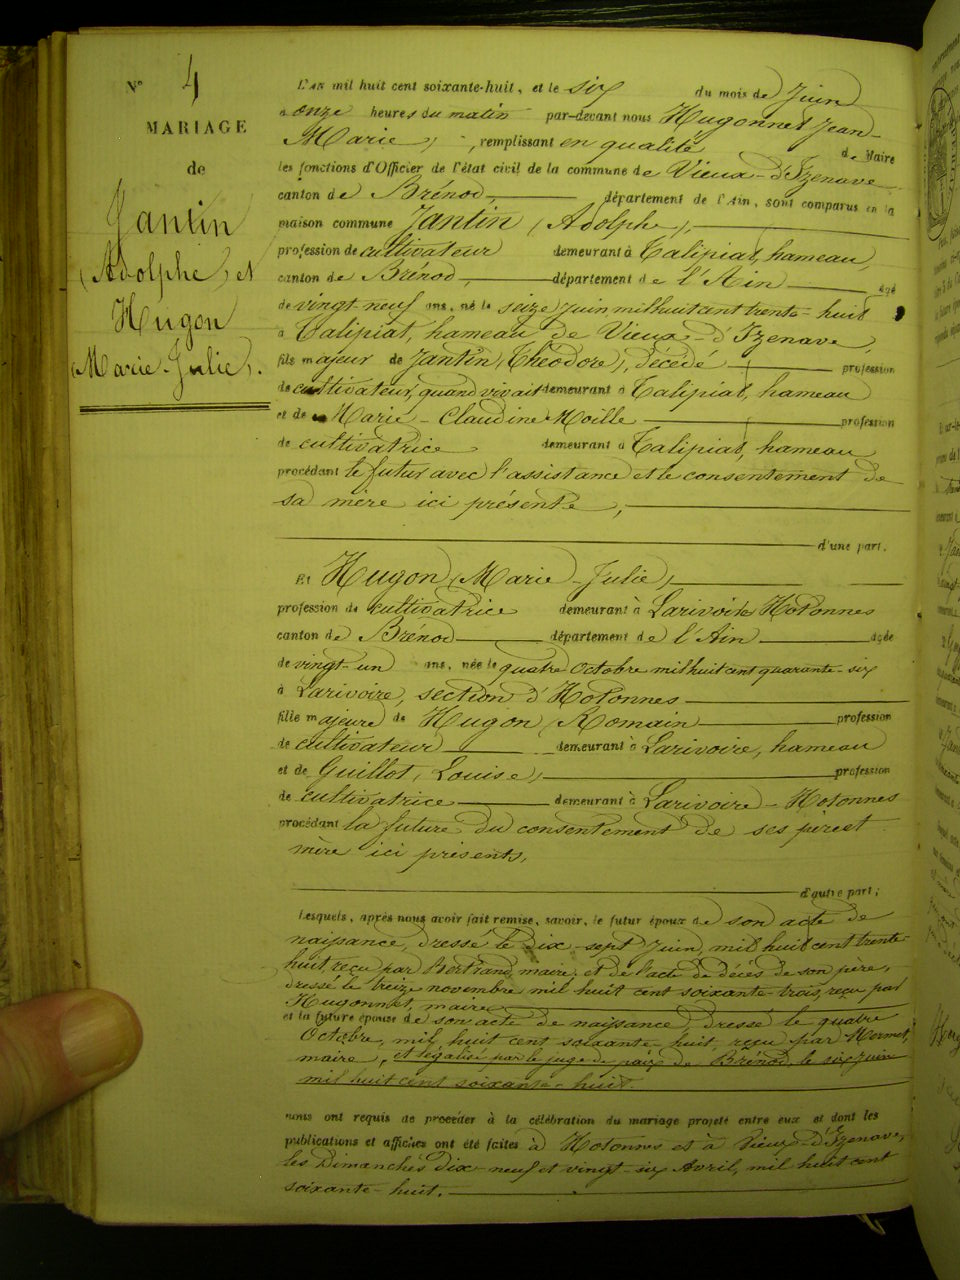 N° 4
MARIAGE
de
Jantin
(Adolphe) et
Hugon
(Marie-Julie).
L'AN mil huit cent soixante-huit, et le six du mois de Juin
à onze heures du matin par-devant nous Hugonnet Jean-
Marie, remplissant en qualité de Maire
les fonctions d'Officier de l'état civil de la commune de Vieux-d'Izenave
canton de Brénod, département de l'Ain, sont comparus en la
maison commune Jantin (Adolphe),
profession de cultivateur demeurant à Talipiat, hameau,
canton de Brénod, département de l'Ain âgé
de vingt-neuf ans, né le seize Juin mil huit cent trente-huit
à Talipiat, hameau de Vieux-d'Izenave,
fils majeur de Jantin (Théodore), décédé profession
de cultivateur, quand vivait demeurant à Talipiat, hameau
et de Marie-Claudine Moille profession
de cultivatrice demeurant à Talipiat, hameau
procédant le futur avec l'assistance et le consentement de
sa mère ici présente,
d'une part.
Et Hugon (Marie-Julie)
profession de cultivatrice demeurant à Larivoire Hotonnes
canton de Brénod département de l'Ain âgée
de vingt-un ans, née le quatre Octobre mil huit cent quarante-six
à Larivoire, section d'Hotonnes
fille majeure de Hugon (Romain profession
de cultivateur demeurant à Larivoire, hameau
et de Guillot, Louise, profession
de cultivatrice demeurant à Larivoire-Hotonnes
procédant la future du consentement de ses père et
mère ici présents,
d'autre part;
Lesquels, après nous avoir fait remise, savoir, le futur époux de son acte de
naissance, dressé le dix-sept Juin mil huit cent trente-
huit, reçu par Bertrand, maire, et de l'acte de décès de son père,
dressé le treize novembre mil huit cent soixante-trois, reçu par
Hugonnet, maire
et la future épouse de son acte de naissance, dressé le quatre
Octobre, mil huit cent soixante-huit, reçu par Mermet,
maire, et légalisé par le juge de paix de Brénod, le six juin
mil huit cent soixante-huit.
nous ont requis de procéder à la célébration du mariage projeté entre eux et dont les
publications et affiches ont été faites à Hotonnes et à Vieux-d'Izenave,
les Dimanches Dix-neuf et vingt-six Avril, mil huit cent
soixante-huit.